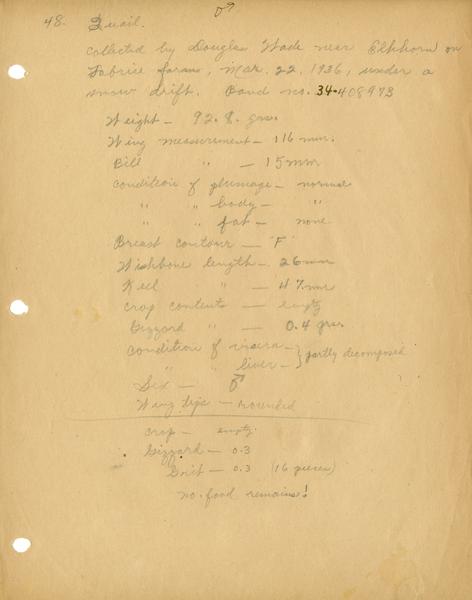 ♂
48. Quail.
collected by Douglas Wade near Elkhorn on
farm, Mar. 22, 1936, under a
snow drift. Band no. 34-408973
Weight - 92.8. grs.
Wing measurement - 116 mm.
Bill " - 15 mm
condition of plumage - normal
" " body - "
" " fat - none
Breast contour - "F"
Wishbone length - 26 mm
Keel " - 47 mm
crop contents - empty
Gizzard " - 0.4 grs.
condition of viscera - } partly decomposed
" " liver - }
Sex - ♂
Wing tips - rounded
crop - empty
Gizzard - 0.3
Grit - 0.3 (16 pieces)
no food remains!